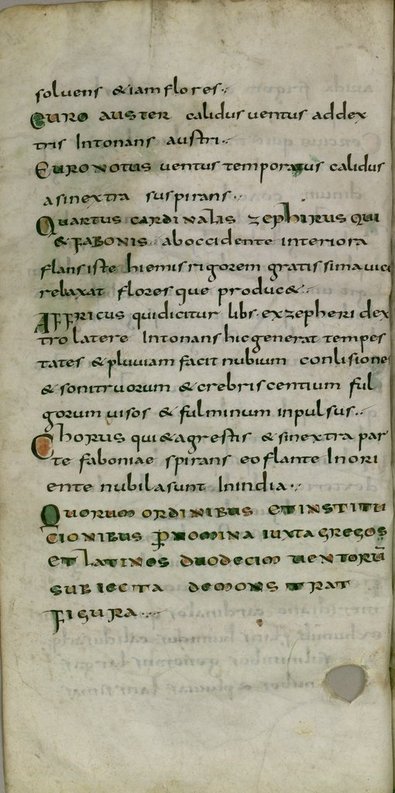 solvens & iam flores.,
EURO AUSTER calidus ventus ad dex
tris Intonans austri.,
EURONOTUS ventus temporatus calidus
asinextra suspirans.,
QUARTUS CARDINALAS ZEPHIRUS QUI
& FABONIS ab occidente interiora
flans iste hiemis rigorem gratissima vice
relaxat flores que produc&.,
AFFRICUS qui dicitur libs ex zepheri dex
tro latere Intonans hic generat tempes
tates & pluviam facit nubium conlisione
& sonitruorum & crebriscentium ful
gorum visos & fulminum inpulsus.,
Chorus qui & agrestis & sinextra par
te faboniae spirans eo flante In ori
ente nubila sunt In india.,
QUORUM ORDINIBUS ET INSTITU
CIONIBUS PNOMINA IUXTA GREGOS
ET LATINOS DUODECIM VENTORŪ
SUBIECTA DEMONSTRAT
FIGURA.,